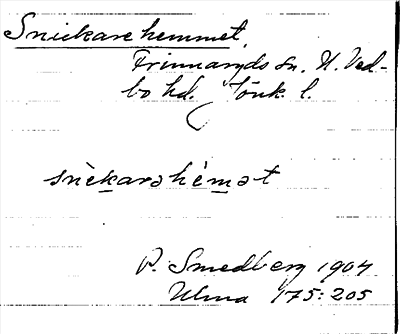 Snickarehemmet,
Frinnaryds sn. N. Ved-
bo hd. Jönk. l.
snèkarəhémət
P. Smedberg 1904
Ulma 175:205